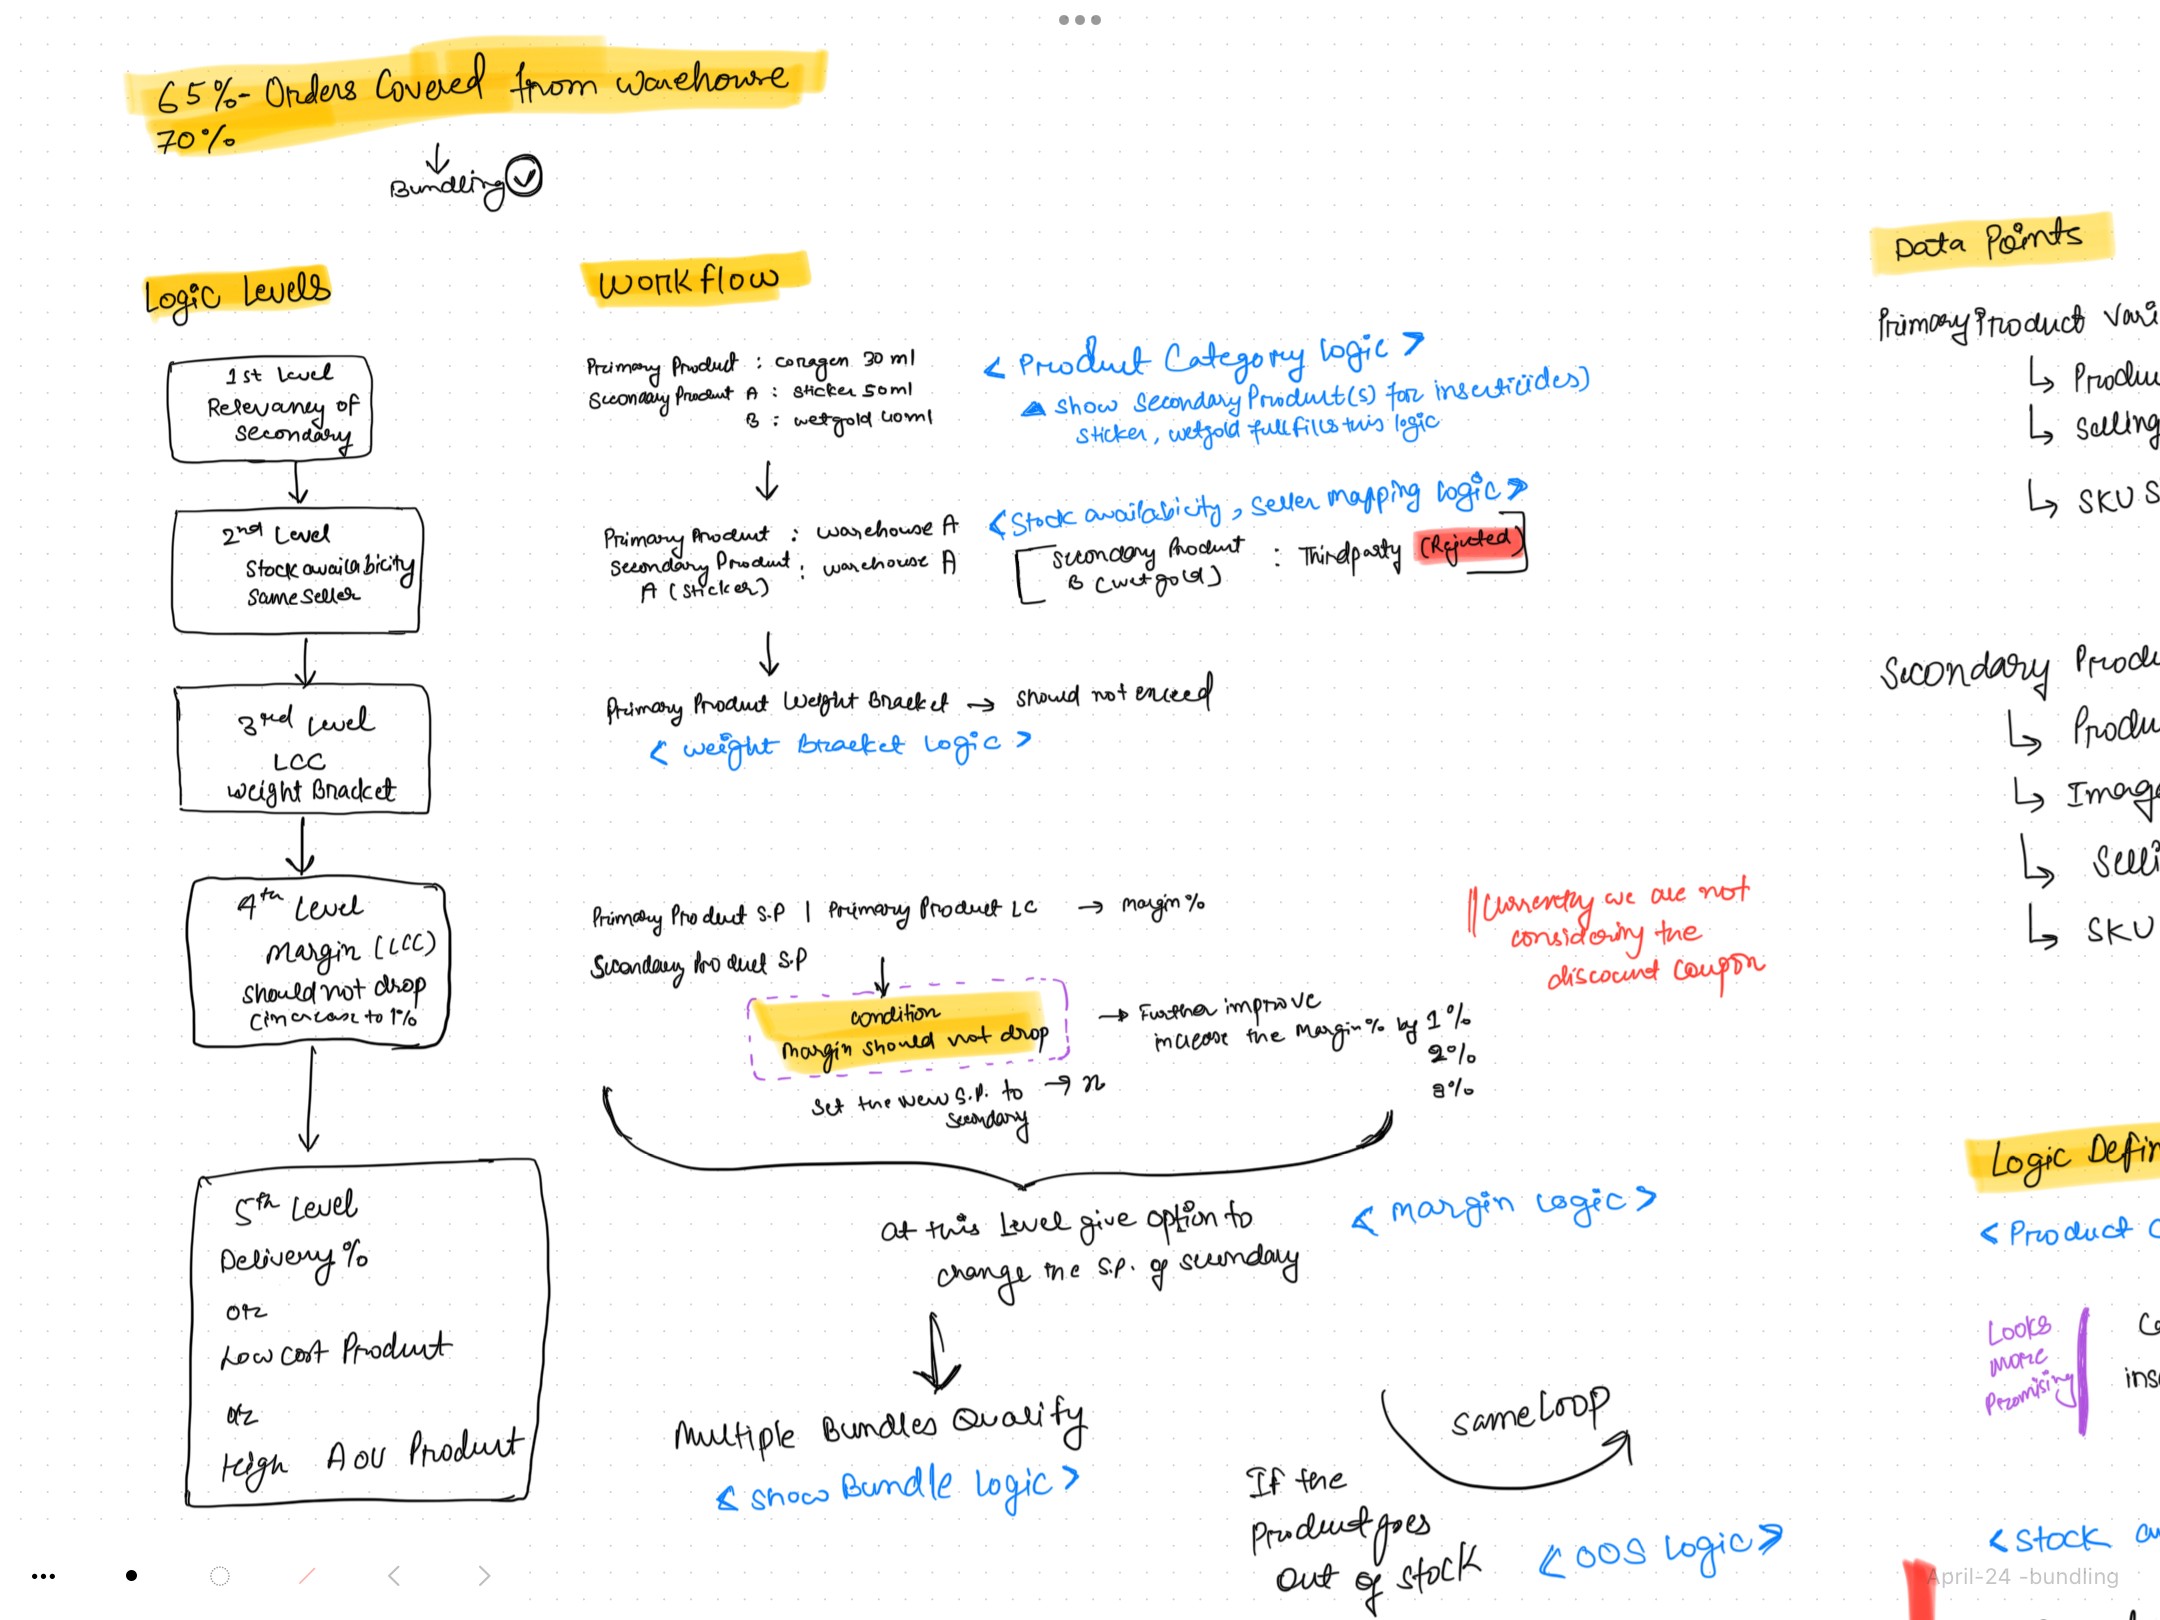 65%- Orders Covered from warehouse
70%
Bundling
Logic Levels
1st Level
Relevancy of
secondary
2nd Level
Stock availability
Same seller
3rd Level
LCC
weight Bracket
4th Level
Margin (LCC)
should not drop
(increase to 1%
5th Level
Delivery %
or
Low cost Product
or
High AOV Product
Workflow
Primary Product : coragen 30 ml
Secondary Product A : sticker 50ml
B : wetgold 40ml
< Product Category Logic >
show secondary Product(s) for insecticides)
sticker, wetgold fullfills this logic
Primary Product : warehouse A
Secondary Product : warehouse A
A (sticker)
< Stock availability, seller mapping logic >
Secondary Product : Third party (Rejected)
B (wetgold)
Primary Product Weight Bracket → should not exceed
< weight Bracket Logic >
Primary Product S.P | Primary Product LC → Margin %
Secondary Product S.P
condition
Margin should not drop
→ Further improve
increase the Margin % by 1%
2%
3%
Set the new S.P. to → n
secondary
|| Currently we are not
considering the
discount coupon
at this Level give option to
change the S.P. of secondary
< Margin Logic >
Multiple Bundles Qualify
< Show Bundle Logic >
Same Loop
If the
Product goes
out of stock
< OOS Logic >
Data Points
Primary Product Vari
Produ
Selling
SKU S
Secondary Produ
Produ
Image
Selli
SKU
Logic Defin
< Product C
Looks
more
Promising
ins
< Stock av
April-24 -bundling